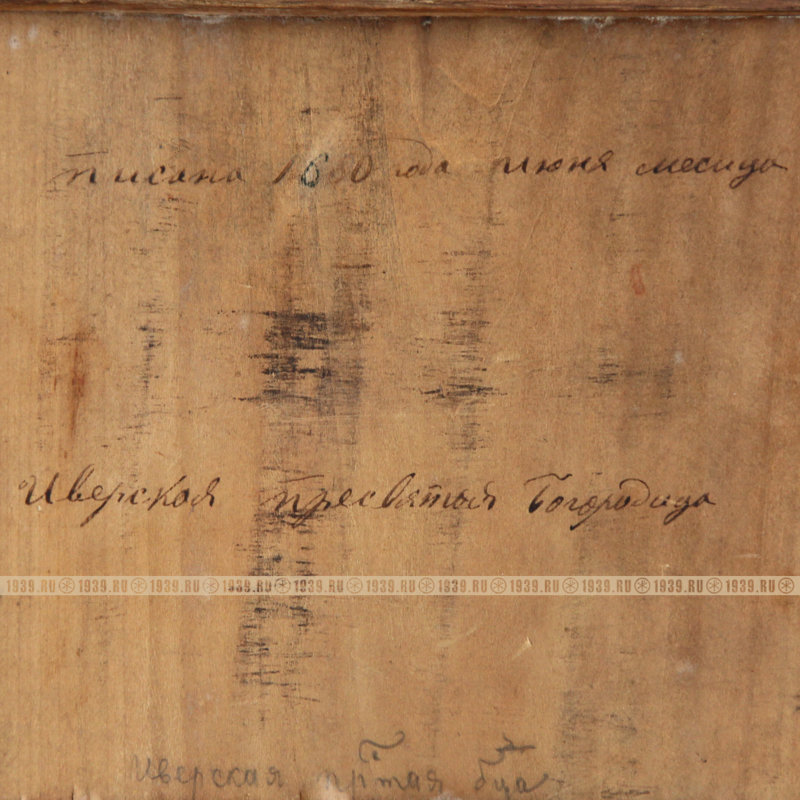 Писана 1660 года июня месица
Иверская Пресвятыя Богородица
1939.RU 1939.RU 1939.RU 1939.RU 1939.RU 1939.RU 1939.RU 1939.RU 1939.RU 1939.RU 1939.RU
Иверская пртая бца